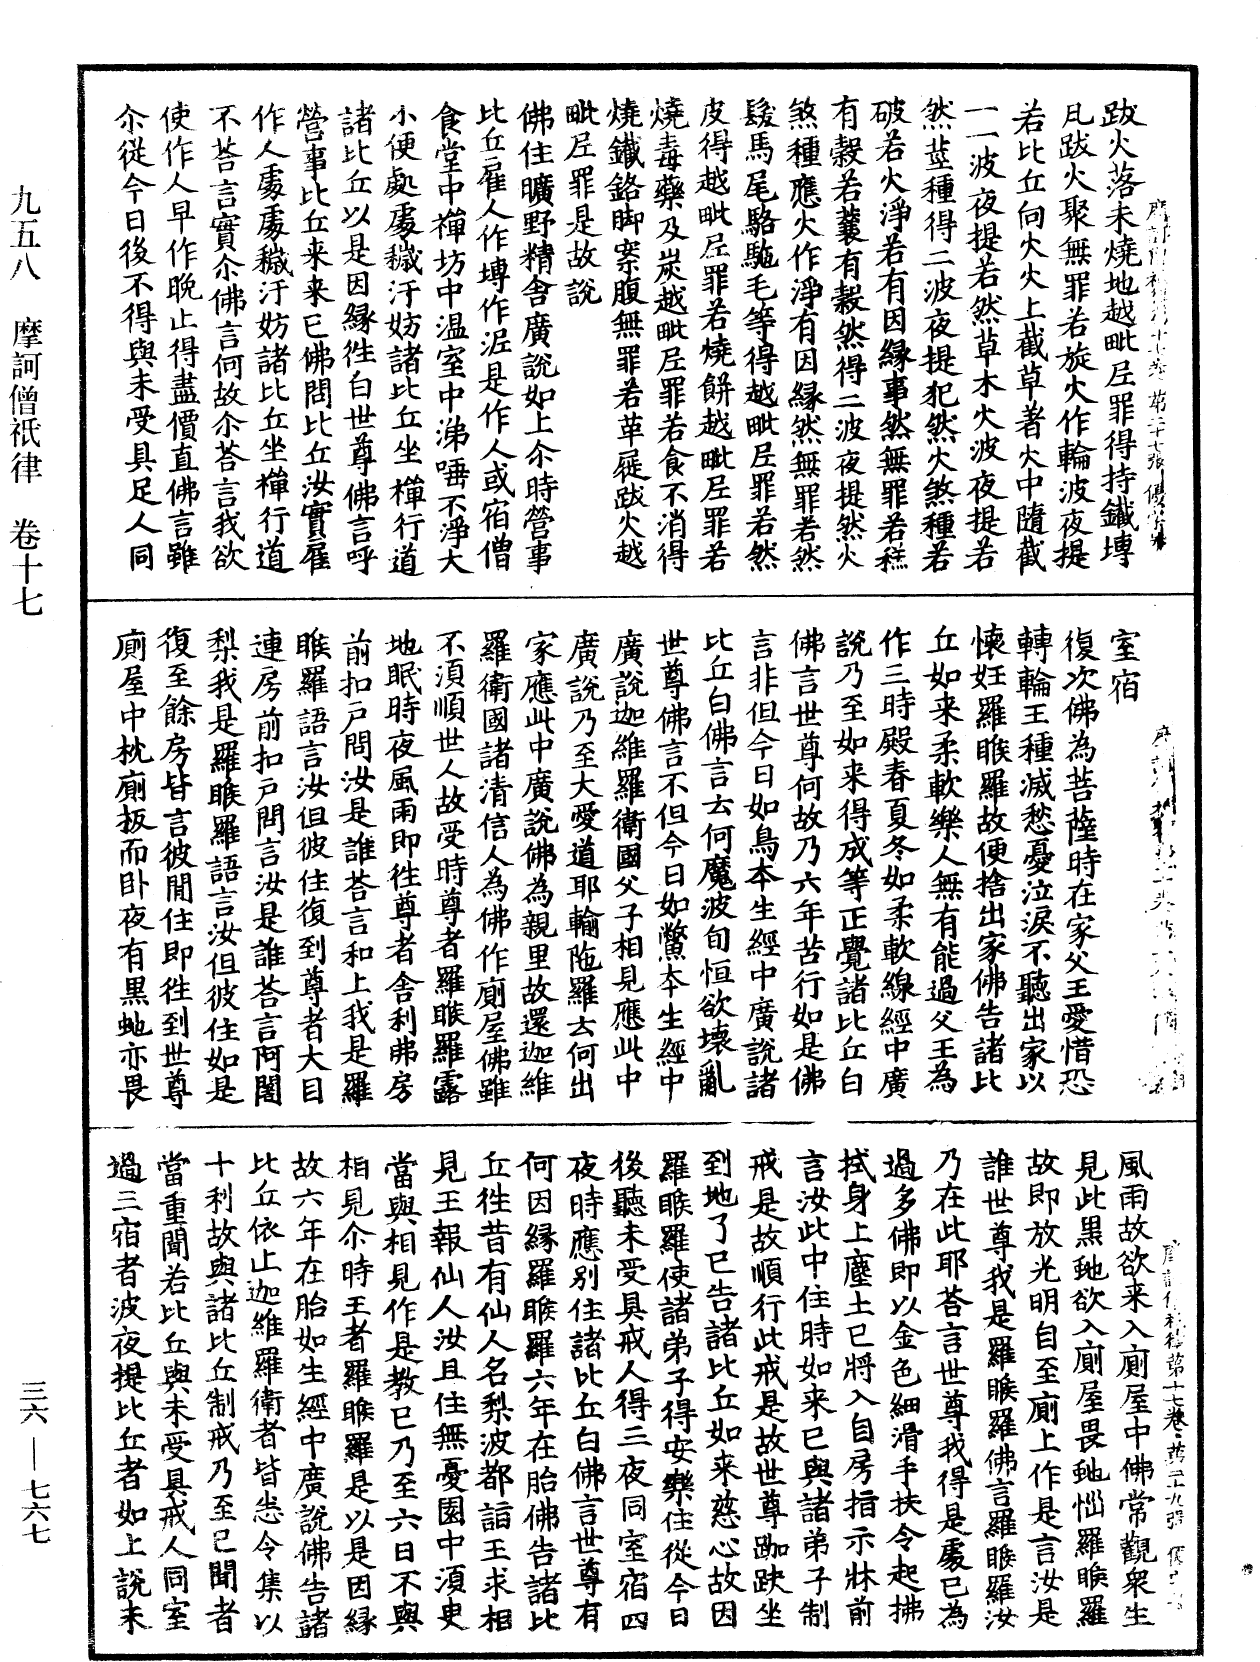 九五八　摩訶僧祇律　卷十七
三六—七六七
跋火落未燒地越毗尼罪得持鐵塼
凡跋火聚無罪若旋火作輪波夜提
若比丘向火火上截草著火中隨截
一一波夜提若然草木火波夜提若
然莖種得二波夜提犯然火煞種若
破若火淨若有因緣事然無罪若𥝩
有穀若䕸有穀然得二波夜提然火
煞種應火作淨有因緣然無罪若然
髮馬尾駱駞毛等得越毗尼罪若然
皮得越毗尼罪若燒餅越毗尼罪若
燒毒藥及炭越毗尼罪若食不消得
燒鐵鉻脚案腹無罪若革屣跋火越
毗尼罪是故說
佛住曠野精舍廣說如上尒時營事
比丘雇人作塼作泥是作人或宿僧
食堂中禪坊中温室中涕唾不淨大
小便處處穢汙妨諸比丘坐禪行道
諸比丘以是因緣往白世尊佛言呼
營事比丘来来已佛問比丘汝實雇
作人處處穢汙妨諸比丘坐禪行道
不荅言實尒佛言何故尒荅言我欲
使作人早作晚止得盡價直佛言雖
尒從今日後不得與未受具足人同
室宿
復次佛為菩薩時在家父王愛惜恐
轉輪王種滅愁憂泣淚不聽出家以
懷妊羅睺羅故便捨出家佛告諸比
丘如来柔軟樂人無有能過父王為
作三時殿春夏冬如柔軟線經中廣
說乃至如来得成等正覺諸比丘白
佛言世尊何故乃六年苦行如是佛
言非但今日如鳥本生經中廣說諸
比丘白佛言云何魔波旬恒欲壞亂
世尊佛言不但今日如鱉本生經中
廣說迦維羅衛國父子相見應此中
廣說乃至大愛道耶輸陁羅云何出
家應此中廣說佛為親里故還迦維
羅衛國諸清信人為佛作廁屋佛雖
不湏順世人故受時尊者羅睺羅露
地眠時夜風雨即往尊者舍利弗房
前扣戶問汝是誰荅言和上我是羅
睺羅語言汝但彼住復到尊者大目
連房前扣戶問言汝是誰荅言阿闍
梨我是羅睺羅語言汝但彼住如是
復至餘房皆言彼間住即往到世尊
廁屋中枕廁板而卧夜有黑虵亦畏
風雨故欲来入廁屋中佛常觀衆生
見此黑虵欲入廁屋畏虵惱羅睺羅
故即放光明自至廁上作是言汝是
誰世尊我是羅睺羅佛言羅睺羅汝
乃在此耶荅言世尊我得是處已為
過多佛即以金色細滑手扶令起拂
拭身上塵土已將入自房指示牀前
言汝此中住時如来已與諸弟子制
戒是故順行此戒是故世尊跏趺坐
到地了已告諸比丘如来慈心故因
羅睺羅使諸弟子得安樂住從今日
後聽未受具戒人得三夜同室宿四
夜時應別住諸比丘白佛言世尊有
何因緣羅睺羅六年在胎佛告諸比
丘往昔有仙人名梨波都詣王求相
見王報仙人汝且住無憂園中湏臾
當與相見作是教已乃至六日不與
相見尒時王者羅睺羅是以是因緣
故六年在胎如生經中廣說佛告諸
比丘依止迦維羅衛者皆悉令集以
十利故與諸比丘制戒乃至已聞者
當重聞若比丘與未受具戒人同室
過三宿者波夜提比丘者如上說未